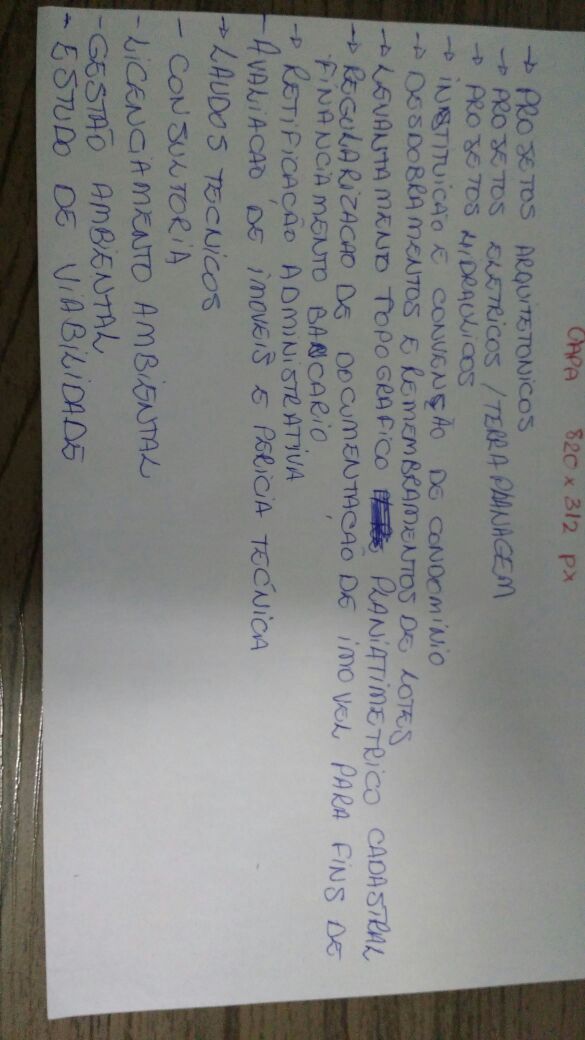 CAPA 820 x 312 PX
→ PROJETOS ARQUITETONICOS
→ PROJETOS ELETRICOS / TERRAPLANAGEM
→ PROJETOS HIDRAULICOS
→ INSTITUICÃO E CONVENÇÃO DE CONDOMÍNIO
→ DESDOBRAMENTOS E REMEMBRAMENTOS DE LOTES
→ LEVANTAMENTO TOPOGRAFICO PLANIATIMETRICO CADASTRAL
→ REGULARIZACAO DE DOCUMENTACÃO DE IMOVEL PARA FINS DE
FINANCIAMENTO BANCARIO
→ RETIFICAÇÃO ADMINISTRATIVA
- AVALIACAO DE IMOVEIS E PERICIA TECNICA
→ LAUDOS TECNICOS
- CONSULTORIA
- LICENCIAMENTO AMBIENTAL
- GESTÃO AMBIENTAL
- ESTUDO DE VIABILIDADE